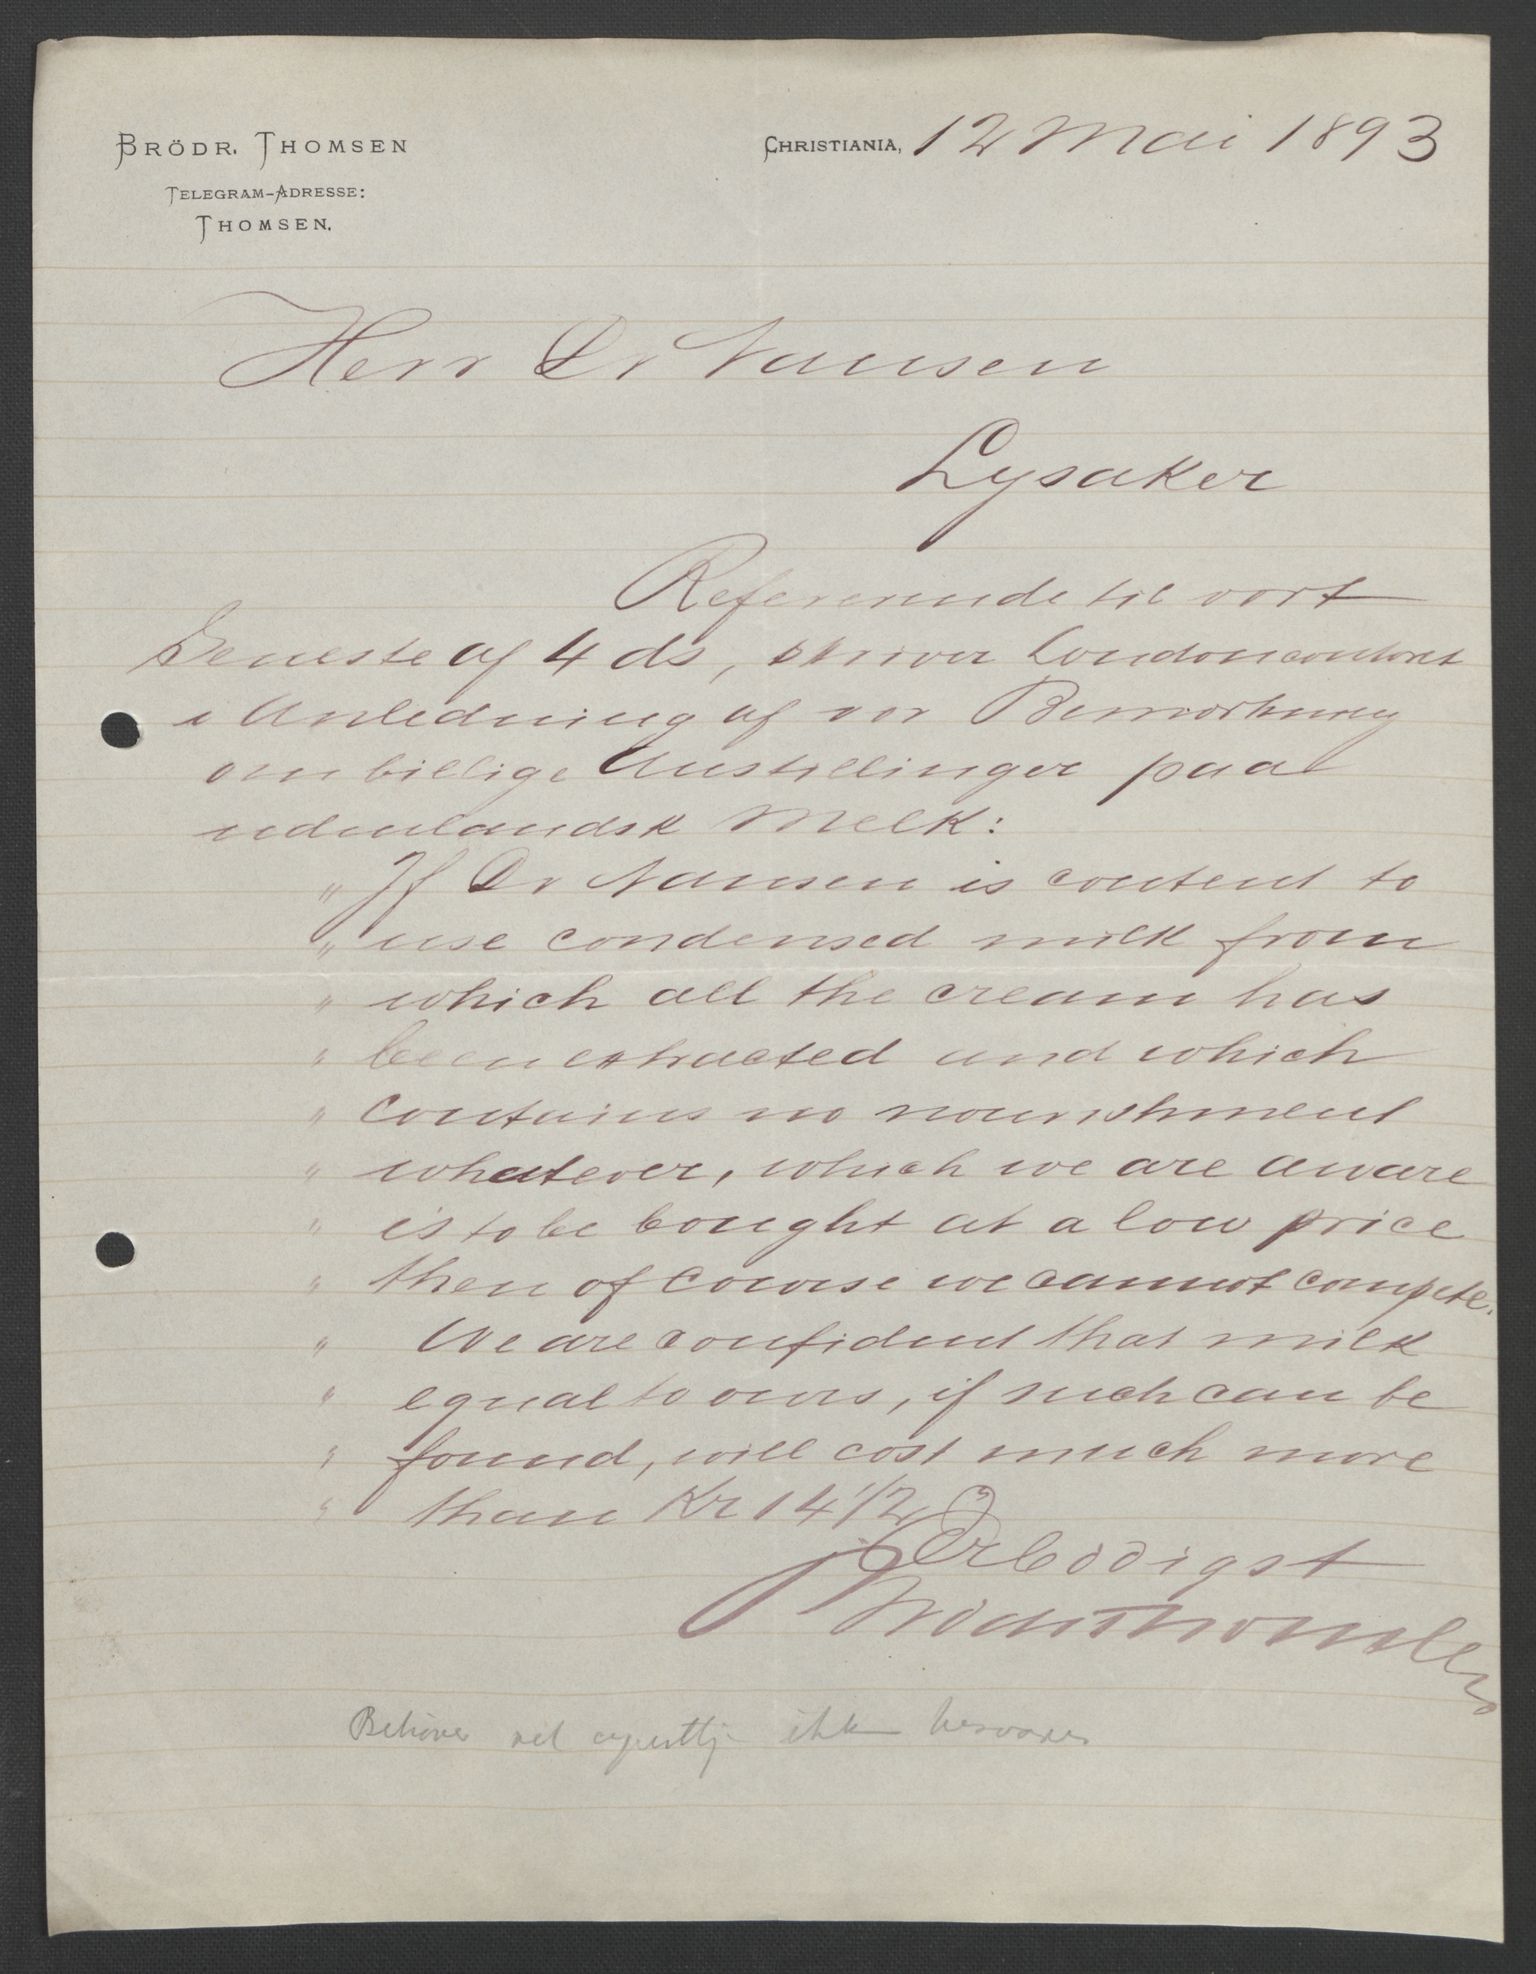 BRÖDR. THOMSEN
TELEGRAM-ADRESSE:
THOMSEN.
CHRISTIANIA, 12 Mai 1893
Herr Dr Nansen
Lysaker
Refererende til vort
Seneste af 4 ds, skriver Londoncontoret
i Anledning af vor Bemærkning
om billige Anstillinger paa
udenlandsk Melk:
" If Dr Nansen is content to
" use condensed milk from
" which all the cream has
" been extracted and which
" contains no nourishment
" whatever, which we are aware
" is to be bought at a low price
" then of course we cannot compete.
" We are confident that milk
" equal to ours, if such can be
" found, will cost much more
" than Kr 14 1/2
Ærbödigst
Brödr Thomsen
Behöver vel egentlig ikke besvares